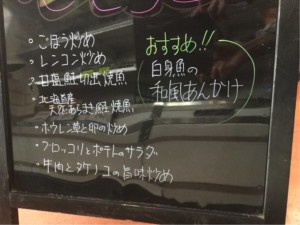 おすすめ!!
白身魚の
和風あんかけ
。ごぼう炒め
。レンコン炒め
・甘塩鮭切出焼魚
・北海道産
天然あらまき鮭焼魚
・ホウレン草と卵の炒め
・ブロッコリとポテトのサラダ
・牛肉とタケノコの旨味炒め